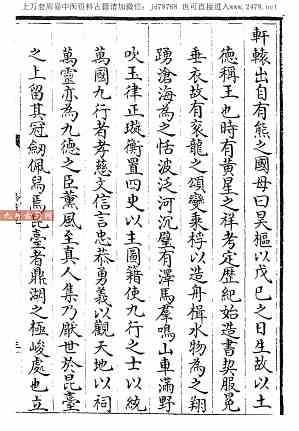 上万套周易中医资料古籍请加微信：jd79768 也可直接进入www.2478.net
軒轅出自有熊之國母曰昊樞以戊己之日生故以土
德稱王也時有黃星之祥考定歷紀始造書契服冕
垂衣故有袞龍之頌變乘桴以造舟楫水物為之翔
踴滄海為之恬波泛河沉璧有澤馬羣鳴山車滿野
吹玉律正璇衡置四史以主圖籍使九行之士以統
萬國九行者孝慈文信言忠恭勇義以觀天地以祠
萬靈亦為九德之臣薰風至真人集乃厭世於昆臺
之上留其冠劒佩舄焉昆臺者鼎湖之極峻處也立